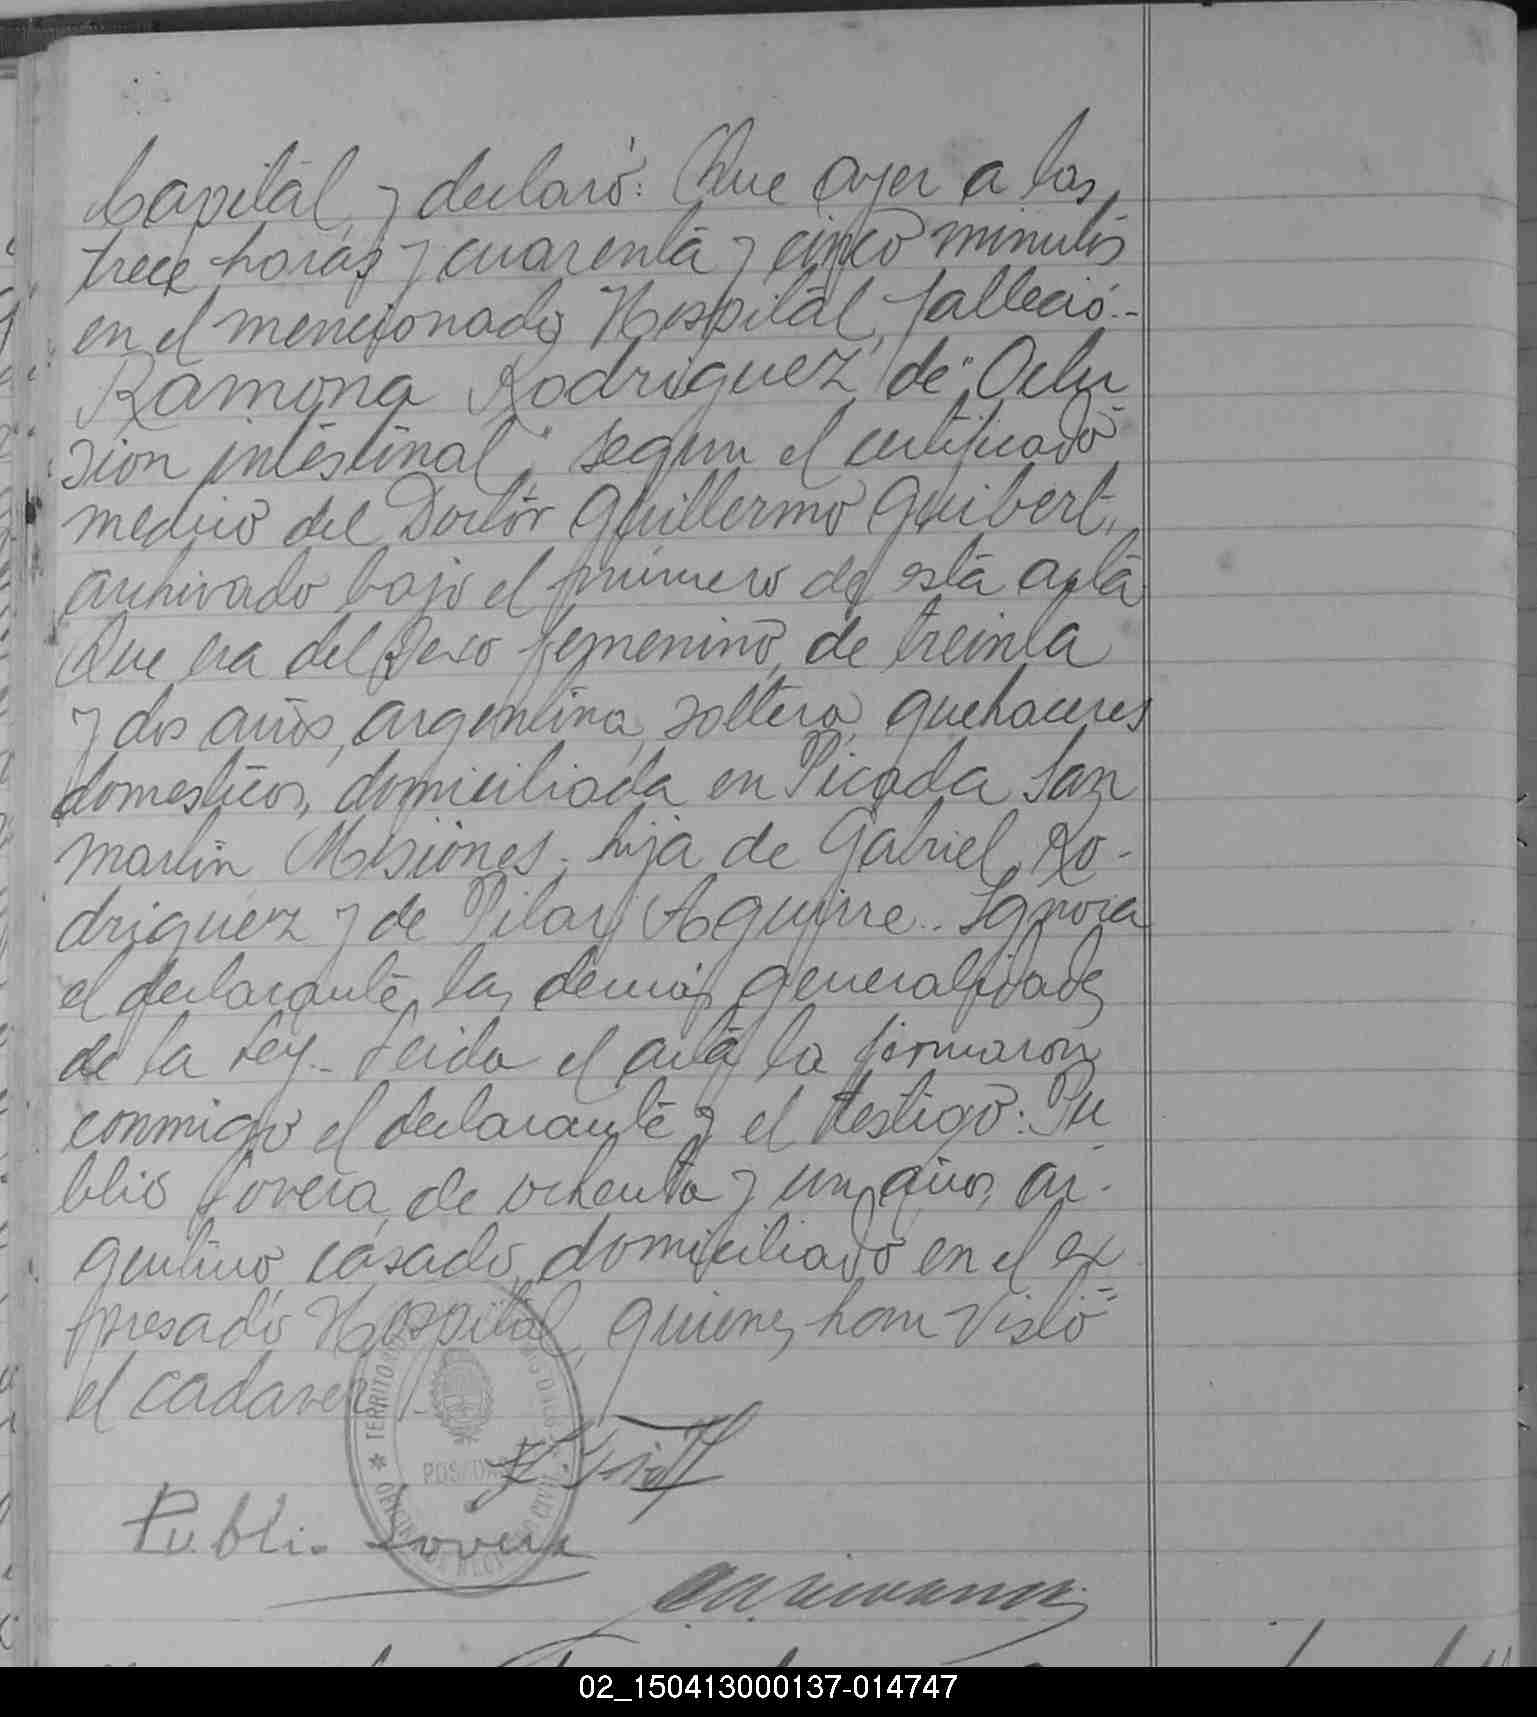 Capital, y declaró: Que ayer a las
trece horas y cuarenta y cinco minutos
en el mencionado Hospital, falleció.-
Ramona Rodriguez, de "Oclu
sion intestinal", segun el certificado
medico del Doctor Guillermo Guibert,
archivado bajo el número de esta acta
Que era del sexo femenino, de treinta
y dos años, argentina, soltera, quehaceres
domesticos, domiciliada en Picada San
Martin, Misiones, hija de Gabriel Ro-
driguez y de Pilar Aguirre.. Ignora
el declarante las demás generalidades
de la Ley.- Leida el acta la firmaron
conmigo el declarante y el testigo: Pu
blio Lovera, de ochenta y un años, ar-
gentino, casado, domiciliado en el ex
presado Hospital, quienes han visto
el cadaver.-
TERRITO
POSADAS
CIVIL
Publio Lovera
02_150413000137-014747